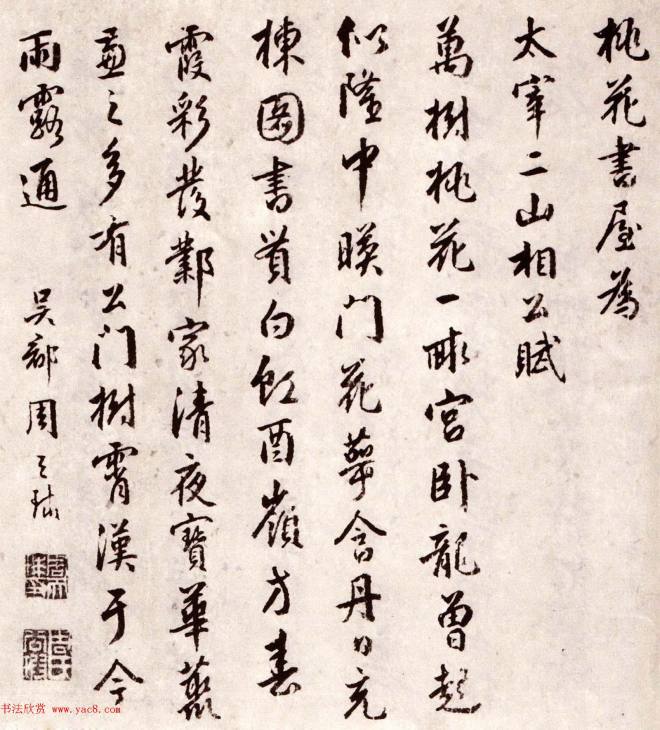 桃花書屋為
太宰二山相公賦
萬樹桃花一畝宮卧龍曾起
似隆中暎門花萼含丹日充
棟圖書貫白虹酉嶺方春
霞彩發鄴家清夜寶華叢
之多有公門樹霄漢于今
雨露通 吳郡周天球
书法欣赏 www.yac8.com